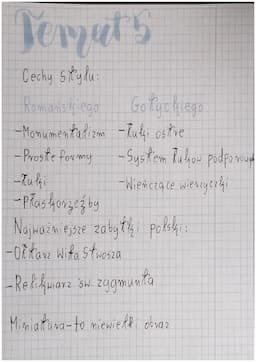 Temat 5
Cechy stylu:
Romańskiego Gotyckiego
-Monumentalizm -Łuki ostre
-Proste formy -System łuków podporowych
-Łuki -Wieńczące wieżyczki
-Płaskorzeźby
Najważniejsze zabytki polski:
-Ołtarz Wita Stwosza
-Relikwiarz św. zygmunta
Miniatura-to niewielki obraz